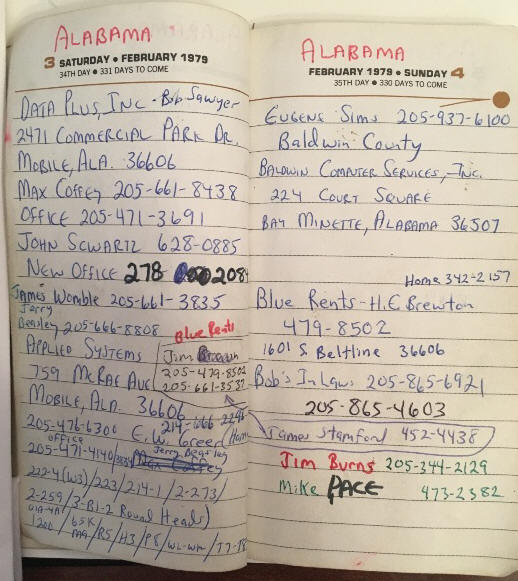 ALABAMA
3 SATURDAY • FEBRUARY 1979
34TH DAY • 331 DAYS TO COME
DATA PLUS, INC - Bob Sawyer
2471 COMMERCIAL PARK DR.
MOBILE, ALA. 36606
MAX COFFEY 205-661-8438
OFFICE 205-471-3691
JOHN SCWARTZ 628-0885
NEW OFFICE 278 2084
JAMES Womble 205-661-3835
Jerry
Beasley 205-666-8808
Blue Rents
APPLIED SYSTEMS Jim
205-479-8502
759 MCRAE AVE 205-661-3537
MOBILE, ALA. 36606
205-476-6300 E.W. Green
office
205-471-4140
222-4(W3)/223/214-1/2-273/
2-259/3-B1-2 Round Heads)
1200/65K/R5/H3/P8/WL-WH/T7-
ALABAMA
FEBRUARY 1979 • SUNDAY 4
35TH DAY • 330 DAYS TO COME
EUGENE SIMS 205-937-6100
Baldwin County
BALDWIN COMPUTER SERVICES, INC.
224 COURT SQUARE
BAY MINETTE, ALABAMA 36507
Home 342-2157
Blue Rents - H.E. Brewton
479-8502
1601 S. Beltline 36606
Bob's InLaws 205-865-6921
205-865-4603
James Stamford 452-4438
Jim Burns 205-344-2129
Mike PACE 473-2382